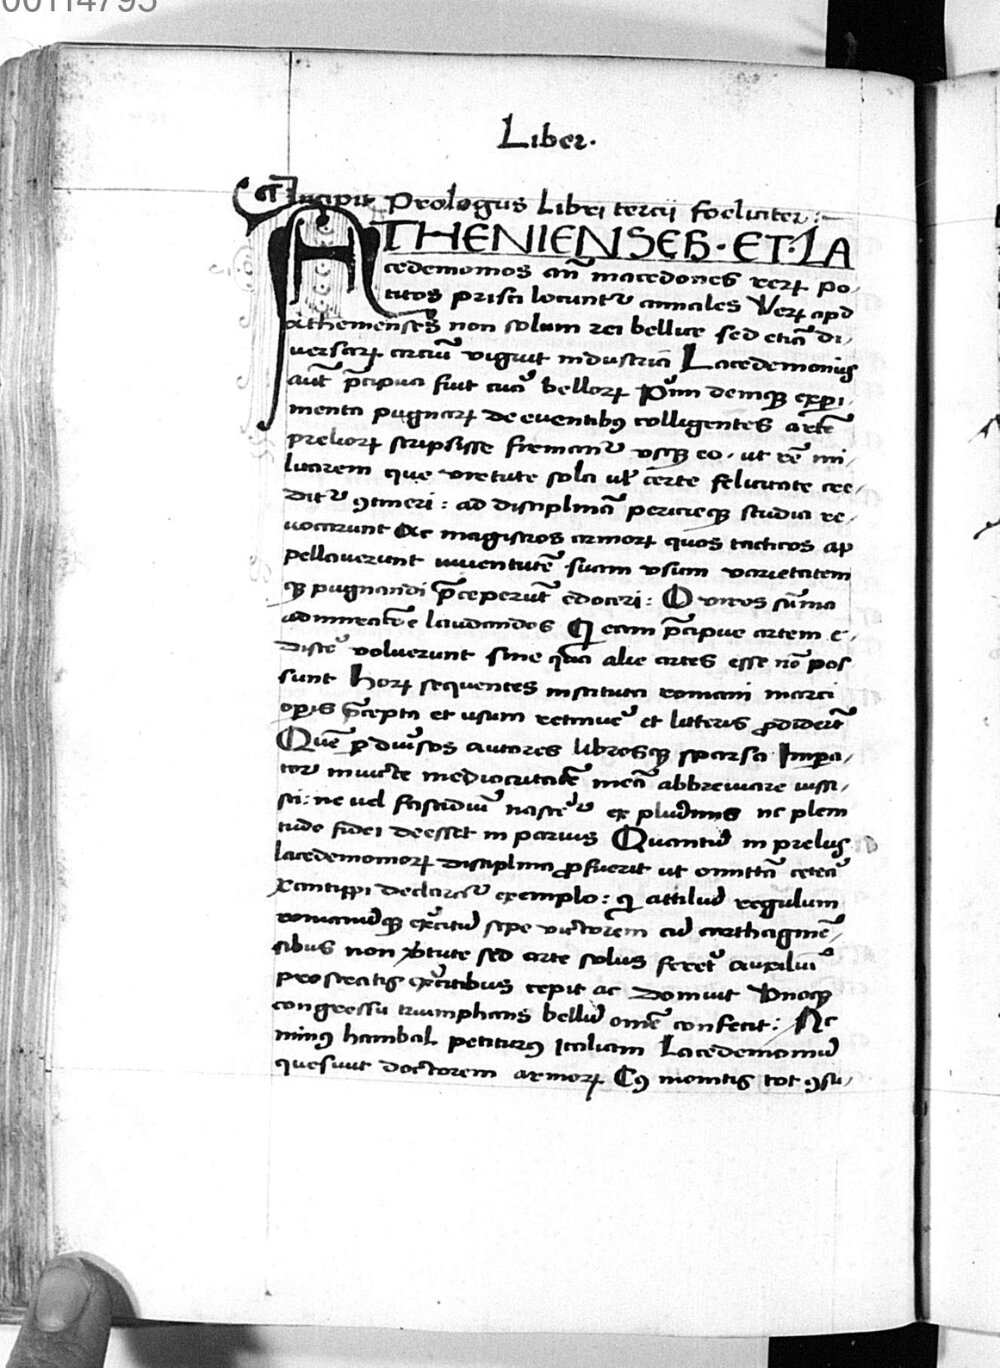 00114795
Liber.
Incipit Prologus Libri tercii foeliciter:
ATHENIENSES · ET · LA
cedemonios añ macedones rerꝝ po/
titos prisci locuntᷣ annales Verꝝ apd
athenienses non solum rei bellice sed etiã di/
versarꝝ arciũ viguit industria Lacedemoniis
aut̃ p̃cipua fuit cura bellorꝝ P̃mi deniqꝫ exp̱i/
menta pugnarꝝ de eventibꝯ colligentes artẽ
preliorꝝ scripsisse firmantᷣ usqꝫ eo · ut rẽ mi/
litarem que virtute sola vl̃ certe felicitate cre/
ditᷣ ꝯtineri : ad disciplinã pericieqꝫ studia re/
vocarunt Ac magistros armorꝝ quos tacticos ap
pellaverunt iuventutẽ suam usum varietatem
qꝫ pugnandi p̃ceperũt edoceri : O viros sũma
admiratõe laudandos Qi eam p̃cipue artem e/
discẽ voluerunt sine qua alie artes esse nõ pos
sunt Horꝝ sequentes instituta romani marci
oꝑis p̃cepta et usum retinuẽ et litteris ꝓdiderũt
Quẽ ꝑ diũsos autores librosqꝫ sparsa Impa/
tor invicte mediocritatẽ meã abbreviare iussi/
sti : ne vel fastidiũ nascerẽᷣ ex plurimis ne pleni
tudo fidei deesset in parvis Quantũ in preliis
lacedemoniorꝝ disciplina ꝓfuerit ut omittã ceterã
xantippi declaratᷣ exemplo : qi attiliũ regulum
romanũqꝫ exercitũ sepe victorem cũ carthaginẽ/
sibus non virtute sed arte solus ferret auxiliũ
prostratis exercitibus cepit ac domuit Unoqꝫ
congressu triumphans bellũ omẽ confecit : Nec
minꝯ hanibal petiturꝯ Italiam Lacedemoniũ
quesivit doctorem armorꝝ Cꝯ monitis tot ꝯsu/